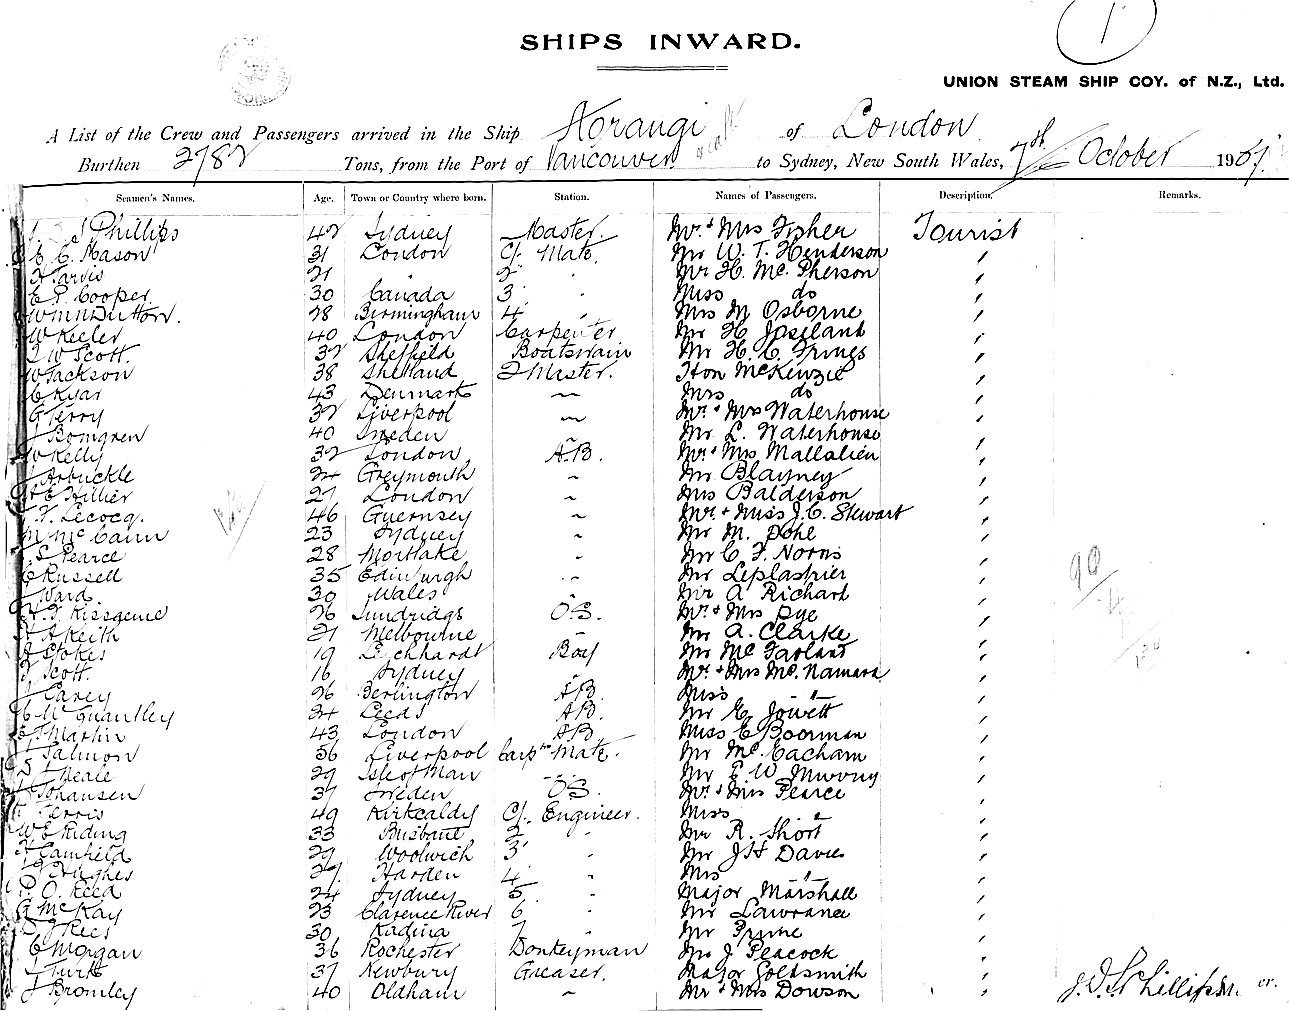 1
SHIPS INWARD.
UNION STEAM SHIP COY. of N.Z., Ltd.
A List of the Crew and Passengers arrived in the Ship Aorangi of London
Burthen 2782 Tons, from the Port of Vancouver to Sydney, New South Wales, 7th October 190
Seamen's Names. Age. Town or Country where born. Station. Names of Passengers. Description. Remarks.
Phillips 42 Sydney Master. Mr & Mrs Fisher Tourist
C. Mason 31 London C/. Mate. Mr W. T. Henderson "
Jarvis 21 " 2 " Mr H. McPherson "
Cooper 30 Canada 3 " Miss do "
Wm Dutton. 28 Birmingham 4 " Mrs M Osborne "
W Keeler 40 London Carpenter Mr H Joseland "
W Scott. 32 Sheffield Boatswain Mr H. C. Frings "
W Jackson 38 Shetland 2 Master. Hon McKenzie "
C Kyar 43 Denmark ~ Mrs do "
G Terry 32 Liverpool ~ Mr & Mrs Waterhouse "
J Bomgren 40 Sweden ~ Mr L. Waterhouse "
W Kelly 32 London A.B. Mr & Mrs Mallalieu "
J Arbuckle 24 Greymouth ~ Mr Blayney "
E Hillier 27 London ~ Mrs Balderson "
Lecocq. 46 Guernsey ~ Mr & Miss J. C. Stewart "
M McCann 23 Sydney ~ Mr M. Dohl "
S Pearce 28 Mortlake ~ Mr C. F. Norris "
C Russell 35 Edinburgh ~ Mr Leplastrier "
Ward 30 Wales ~ Mr A Richard "
Kissgene 26 O.S. Mr & Mrs Dye "
A Keith 21 Melbourne ~ Mr A. Clarke "
Stokes 19 Leichhardt Boy Mr McFarland "
Scott. 16 Sydney ~ Mr & Mrs McNamara "
Carey 26 Berlington A.B. Miss " "
Quantley 34 Leeds A.B. Mr E. Jowett "
J Martin 43 London A.B. Miss E Boorman "
Salmon 56 Liverpool Carp'rs Mate. Mr McEacham "
Neale 29 Isle of Man ~ Mr P W Murray "
Johansen 37 Sweden O.S. Mr & Mrs Pearce "
Ferris 49 Kirkcaldy C/. Engineer. Miss " "
W E Riding 33 Brisbane 2 " Mr R. Short "
Camfield 29 Woolwich 3 " Mr J H Davis "
Hughes 27 Harden 4 " Mrs " "
O. Reed 24 Sydney 5 " Major Marshall "
G McKay 23 Clarence River 6 " Mr Lawrance "
J Rees 30 Kadina 7 " Mr Prime "
C Morgan 36 Rochester Donkeyman Mr J Peacock "
J Turk 37 Newbury Greaser. Major Goldsmith "
J Bromley 40 Oldham ~ Mr & Mrs Dowson "
Phillips